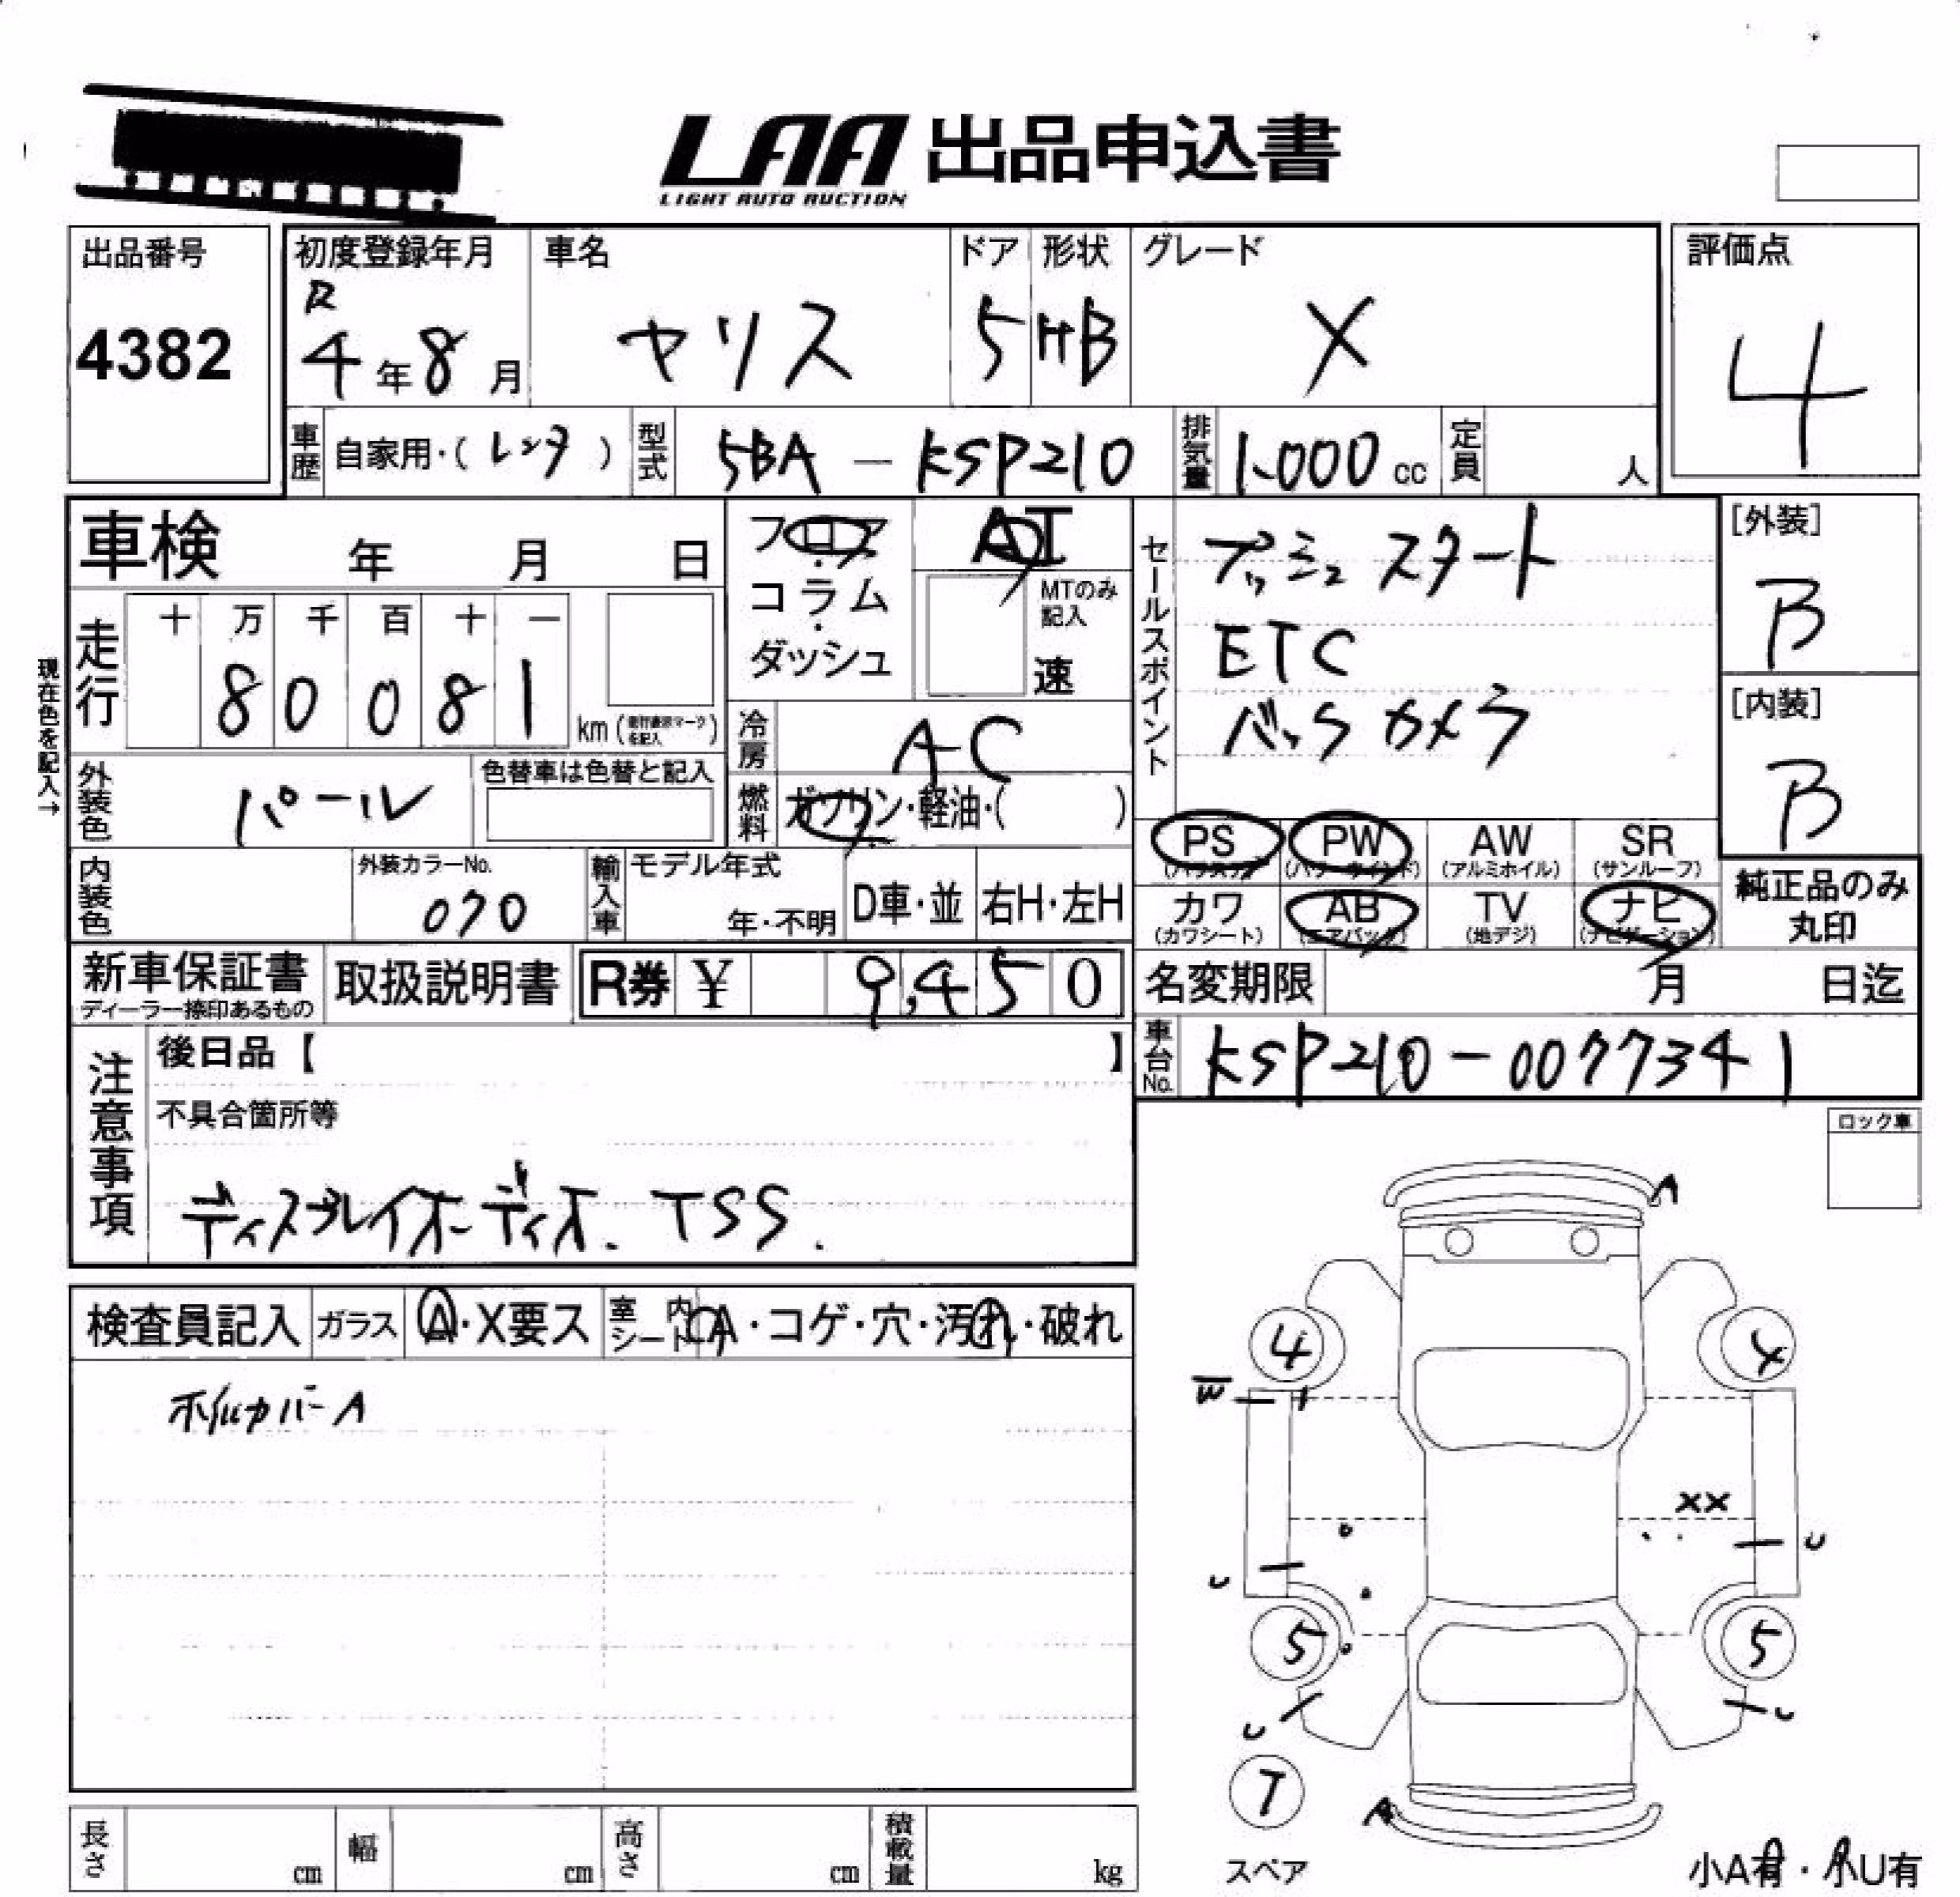 LAA 出品申込書
LIGHT AUTO AUCTION
出品番号
4382
初度登録年月
R
4年8月
車名
ヤリス
ドア
5
形状
HB
グレード
X
評価点
4
車歴
自家用・(レンタ)
型式
5BA - KSP210
排気量
1,000 cc
定員
人
車検 年 月 日
走行
十 万 千 百 十 一
8 0 0 8 1
km
現在色を記入→
フロア
・
コラム
・
ダッシュ
AT
MTのみ
記入
速
冷房
AC
燃料
ガソリン・軽油・( )
セールスポイント
プッシュスタート
ETC
バックカメラ
[外装]
B
[内装]
B
外装色
パール
色替車は色替と記入
内装色
外装カラーNo.
070
輸入車
モデル年式
年・不明
D車・並
右H・左H
PS
(パワステ)
PW
(パワーウインド)
AW
(アルミホイル)
SR
(サンルーフ)
カワ
(カワシート)
AB
(エアバック)
TV
(地デジ)
ナビ
(ナビゲーション)
純正品のみ
丸印
新車保証書
ディーラー捺印あるもの
取扱説明書
R券 ¥ 9,450
名変期限 月 日迄
車台No.
KSP210-0077341
注意事項
後日品【 】
不具合箇所等
ディスプレイオーディオ. TSS.
ロック車
検査員記入
ガラス
A・X要ス
室内
シート
A・コゲ・穴・汚れ・破れ
ホイルカバーA
A
4
4
W
XX
U
U
5
5
U
U
T
スペア
A
小A有・小U有
長さ cm
幅 cm
高さ cm
積載量 kg